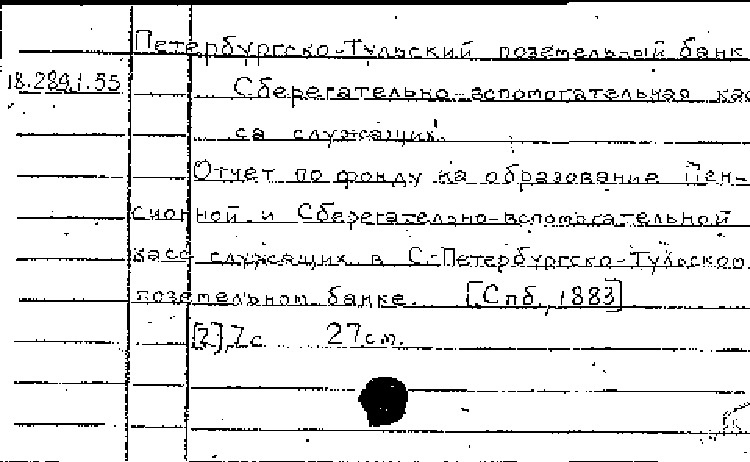 Петербургско-Тульский поземельный банк
18.289.1.55
Сберегательно-вспомогательная кас
са служащих.
Отчет по фонду на образование Пен-
сионной и Сберегательно-вспомогательной
касс служащих в С.-Петербургско-Тульском
поземельном банке. [Спб., 1883]
[2], 7 с. 27 см.